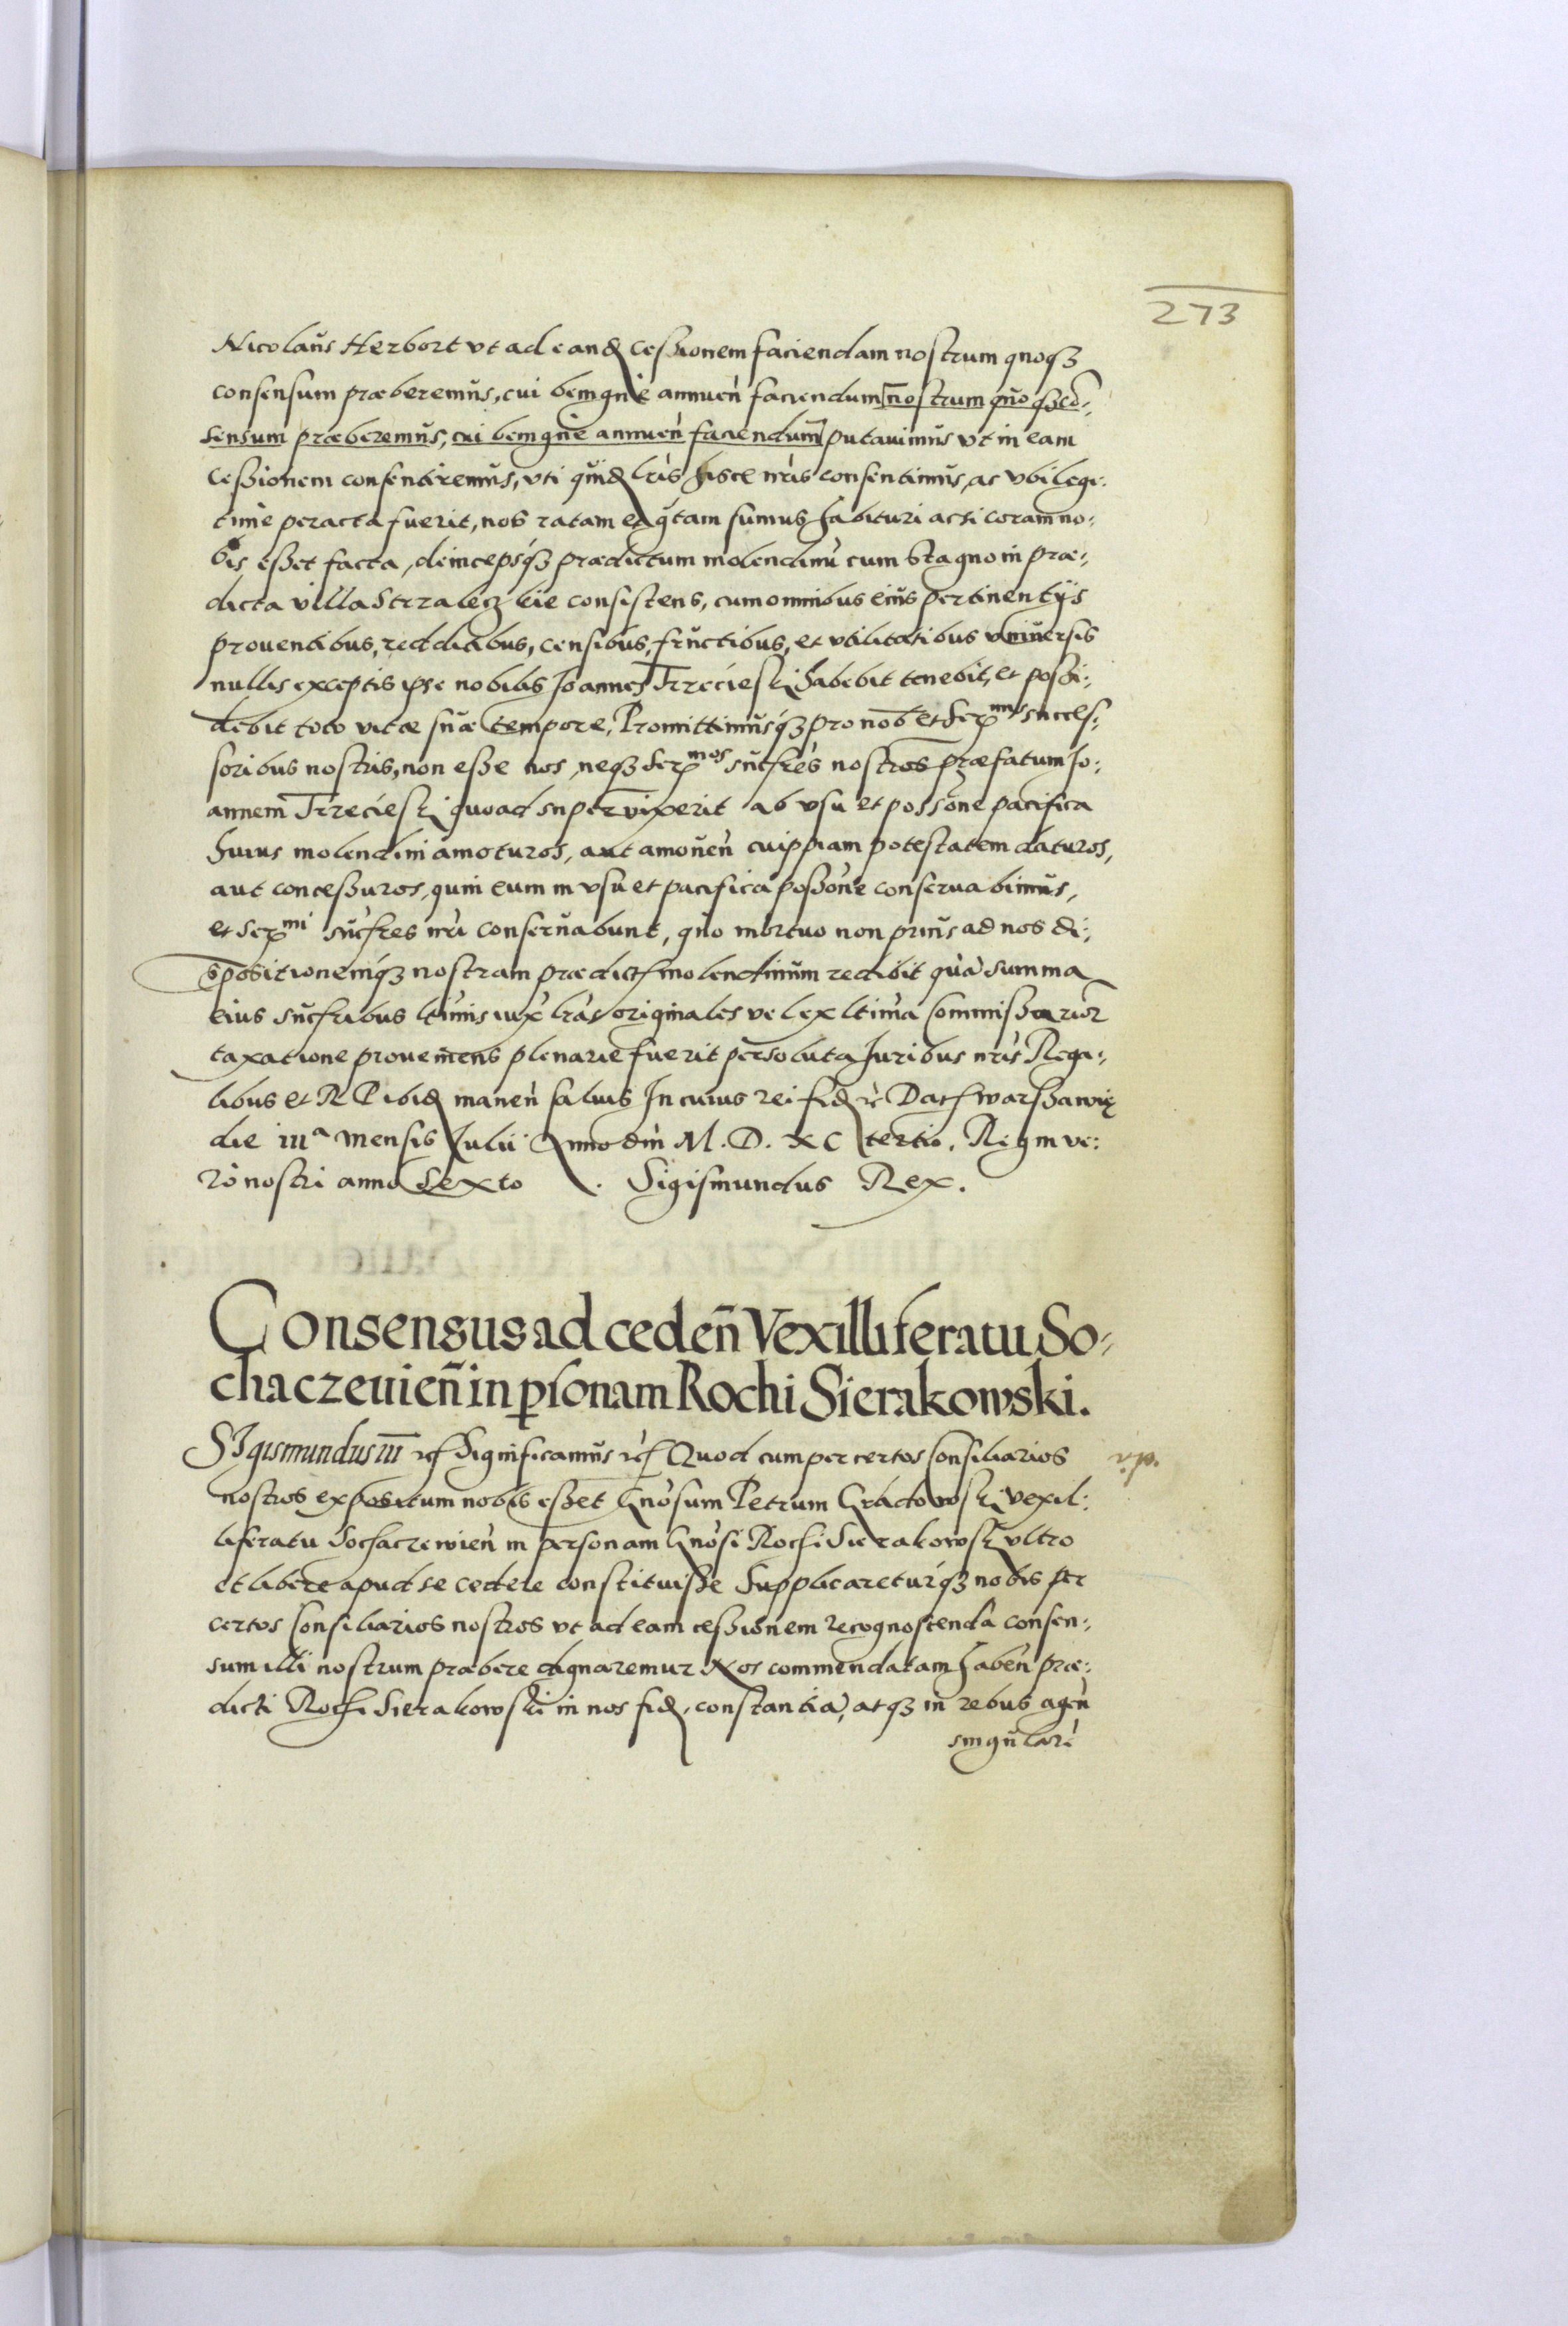 273
Nicolaus Herbort vt ad eand cessionem faciendam nostrum quoqȝ
consensum præberemus, cui benigne annuen̄ faciendum nostrum quoqȝ cō:
sensum præberemus, cui benigne annuen̄ faciendum putauimus vt in eam
Cessionem consentiremus, vti quid lris hisce nr̄is consentimus, ac vbi legi:
time peracta fuerit, nos ratam et gratam sumus habituri acsi coram no:
bis esset facta, deincepsqȝ prædictum molendinū cum stagno in præ:
dicta villa consistens, cum omnibus eius pertinentijs
prouentibus, redditibus, censibus, fructibus, et vtilitatibus vniuersis
nullis exceptis ipse nobilis Joannes Trzecieski habebit tenebit, et possi:
debit toto vitæ suæ tempore, Promittimusqȝ pro nob et Ser^mis succes:
soribus nostris, non esse nos, neqȝ Ser^mos suc̄res nostros præfatum Jo:
annem Trzecieski quoad superuixerit ab vsu et possōne pacifica
huius molendini amoturos, aut amouen̄ cuippiam potestatem daturos,
aut concessuros, quin eum in vsu et pacifica possōne conseruabimus,
et Ser^mi suc̄res nr̄i conseruabunt, quo mortuo non prius ad nos di:
spositionemqȝ nostram prædict molendinum redibit quā summa
eius suc̄ribus ltimis iux lras originales vel ex ltima Commissarior
taxatione proueniens plenarie fuerit persoluta Juribus nr̄is Rega:
libus et R P ibid manen̄ saluis In cuius rei fid rc̄ Dat Warssawiæ
die iii^a mensis Julii Anno dn̄i M. D. XC tertio. Regni ve:
ro nostri anno Sexto. Sigismundus Rex.
Consensus ad ceden̄ Vexilliferatu So:
chaczeuien̄ in p̱sonam Rochi Sierakowski.
SIgismundus iii rc̄ Significamus rc̄ Quod cum per certos Consiliarios
nostros expositum nobis esset Gnōsum Petrum vexil:
liferatu Sochaczewien̄ in personam Gnōsi Rochi Sierakowski vltro
et libere apud se cedere constituisse Supplicareturqȝ nobis per
certos Consiliarios nostros vt ad eam cessionem recognoscendā consen:
sum illi nostrum præbere dignaremur Nos commendatam haben̄ præ:
dicti Rochi Sierakowski in nos fid, constantiā, atqȝ in rebus agen̄
singulari